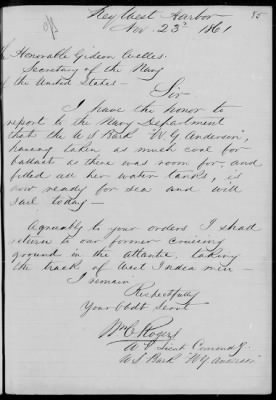 Key West Harbor
Nov. 23d 1861
85
Honorable Gideon Welles.
Secretary of the Navy
of the United States -
Sir
I have the honor to
report to the Navy Department
that the U S Bark "W. G. Anderson",
having taken as much coal for
ballast as there was room for, and
filled all her water tanks, is
now ready for sea and will
sail today -
Agreeably to your orders I shall
return to our former cruising
ground in the Atlantic, taking
the track of West India men -
I remain
Respectfully
Your Obdt Servt
Wm C. Rogers
Lieut Comndg.
U S Bark "W G Anderson"